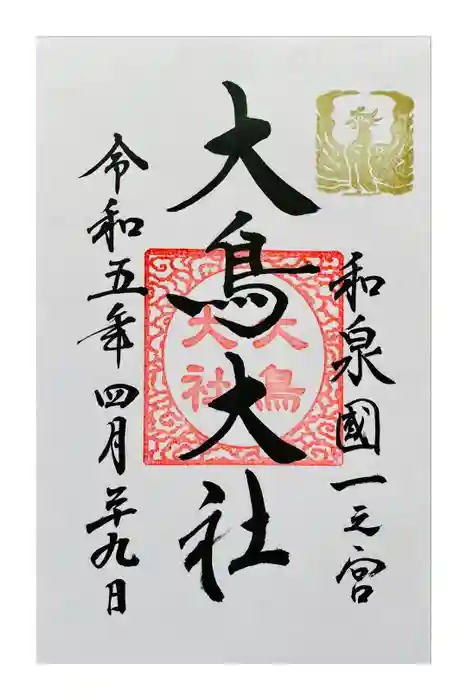 和泉國一之宮
大鳥大社
大鳥
大社
令和五年四月廿九日